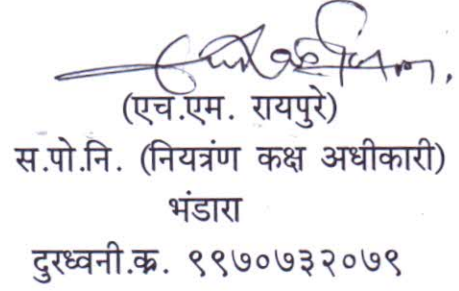 (एच.एम. रायपुरे)
स.पो.नि. (नियत्रंण कक्ष अधीकारी)
भंडारा
दुरध्वनी.क्र. ९९७०७३२०७९